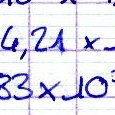 4,21 x
83 x 10³